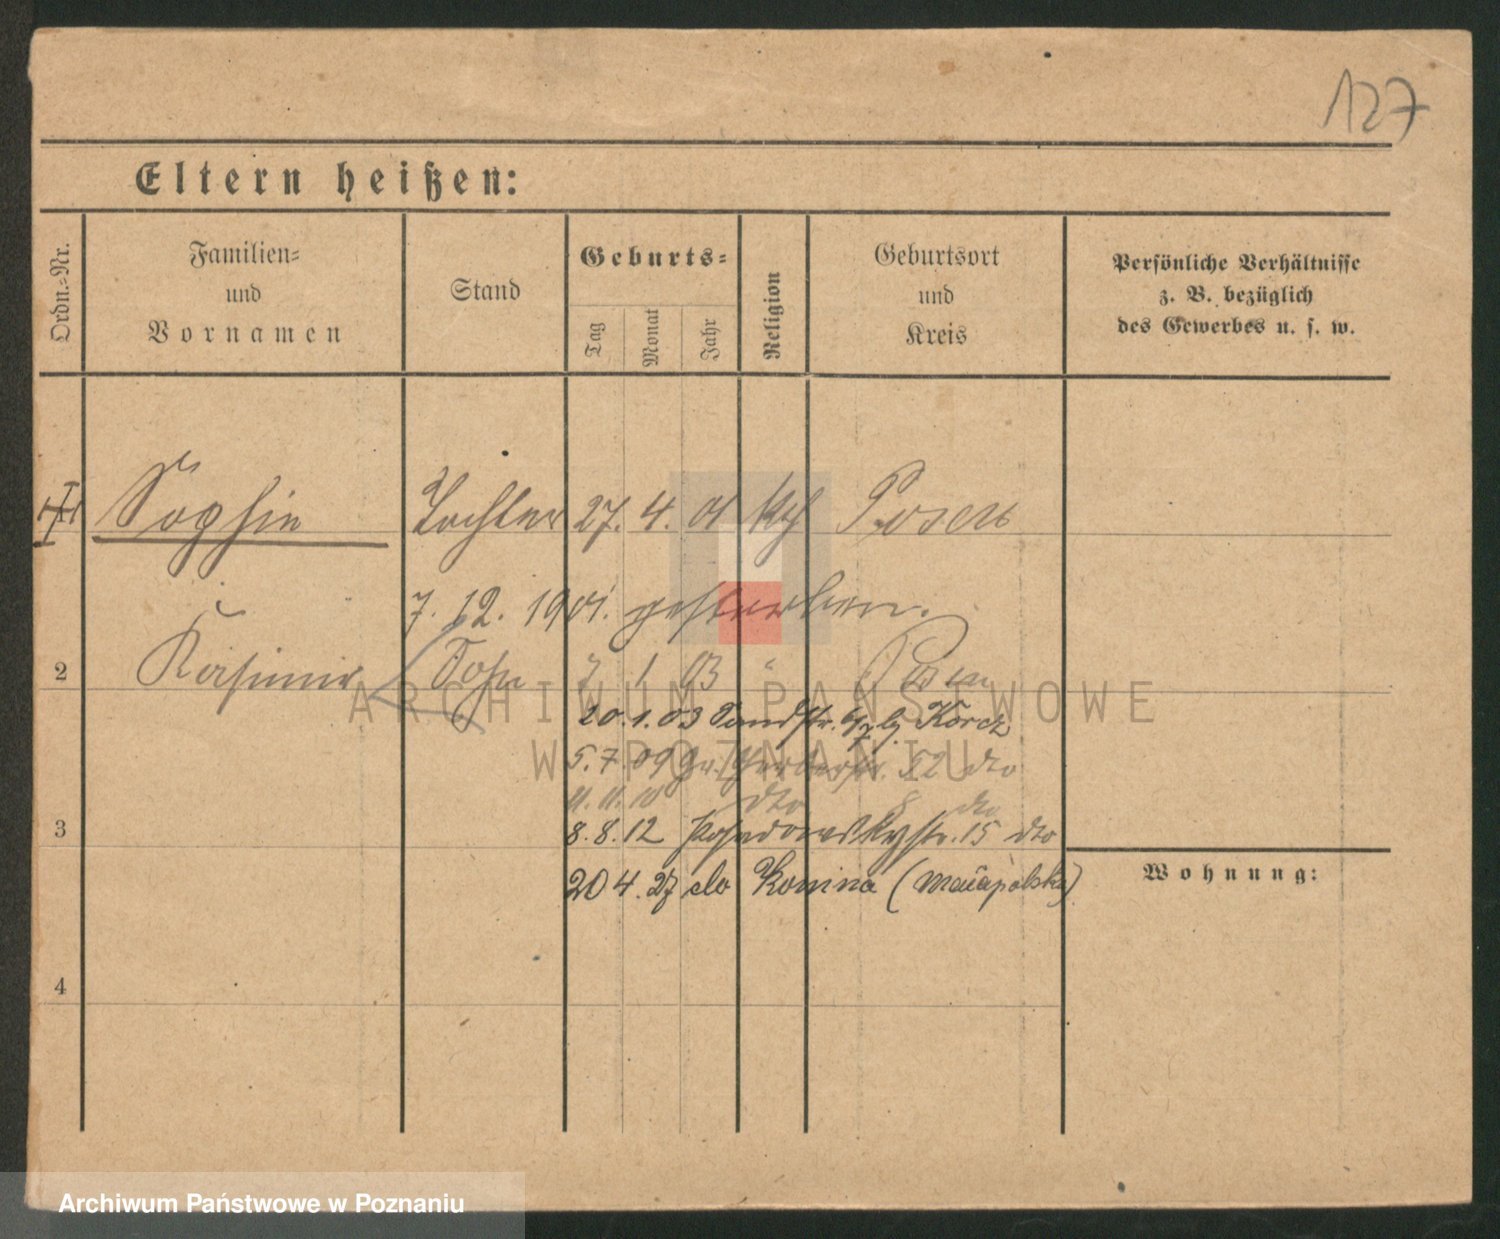 127
Eltern heißen:
Ordn.-Nr.
Familien-
und
Vornamen
Stand
Geburts-
Tag
Monat
Jahr
Religion
Geburtsort
und
Kreis
Persönliche Verhältnisse
z. B. bezüglich
des Gewerbes u. s. w.
Sophie Tochter 27. 4. 01 kth Posen
7. 12. 1901. gestorben.
2 Kasimir Sohn 7 1 03 " Posen
ARCHIWUM PAŃSTWOWE
W POZNANIU
20.1.03 Sandstr. b/ Korcz
5.7.09 Gr. Gerberstr. 52 dto
11.11.10 dto dto
3
8.8.12 Posadowskystr. 15 dto
Wohnung:
20 4. 27 do Konina (Małopolska)
4
Archiwum Państwowe w Poznaniu